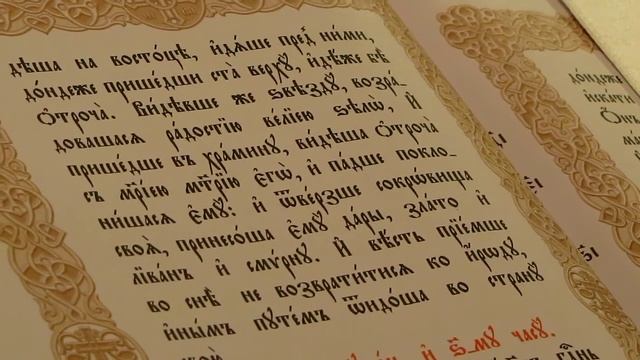 дѣша на восто́цѣ, и҆дѧ́ше пред̾ ни́ми,
до́ндеже прише́дши ста̀ верхꙋ̀, и҆дѣ́же бѣ̀
Ѻ҆троча̀. Ви́дѣвше же ѕвѣздꙋ̀, возра́-
довашасѧ ра́достїю ве́лїею ѕѣлѡ̀, И҆
прише́дше въ хра́минꙋ, ви́дѣша Ѻ҆троча̀
съ мр҃і́ею мт҃рїю є҆гѡ̀, и҆ па́дше покло-
ни́шасѧ є҆мꙋ̀: и҆ ѿве́рзше сокрѡ́вища
своѧ̑, принесо́ша є҆мꙋ̀ да́ры, зла́то и҆
лїва́нъ и҆ смѵ́рнꙋ. И҆ вѣ́сть прїе́мше
во снѣ̀ не возврати́тисѧ ко и҆́рѡдꙋ,
и҆ны́мъ пꙋте́мъ ѿидо́ша во странꙋ̀
и҆ ѕ҃-мꙋ часꙋ̀.
до́ндеже